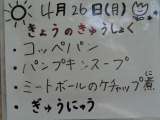 4月26日(月)
きょうのきゅうしょく
・コッペパン
・パンプキンスープ
・ミートボールのケチャップ煮
・ぎゅうにゅう